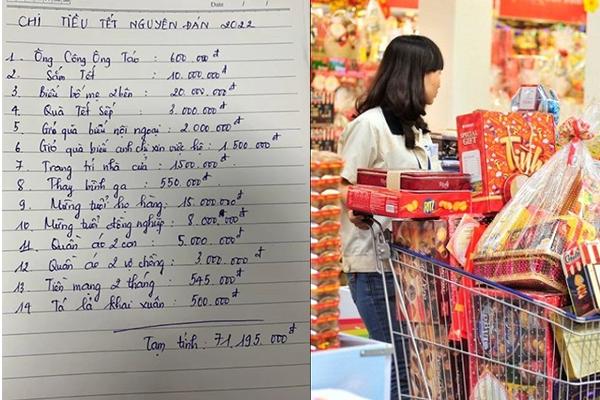 Date / /
CHI TIÊU TẾT NGUYÊN ĐÁN 2022
1. Ông Công Ông Táo : 600.000đ
2. Sắm Tết : 10.000.000đ
3. Biếu bố mẹ 2 bên : 20.000.000đ
4. Quà Tết Sếp : 3.000.000đ
5. Giỏ quà biếu nội ngoại : 2.000.000đ
6. Giỏ quà biếu anh chị xin việc hộ : 1.500.000đ
7. Trang trí nhà cửa : 1500.000đ
8. Thay bình ga : 550.000đ
9. Mừng tuổi họ hàng : 15.000.000đ
10. Mừng tuổi đồng nghiệp : 8.000.000đ
11. Quần áo 2 con : 5.000.000đ
12. Quần áo 2 vợ chồng : 3.000.000đ
13. Tiền mạng 2 tháng : 545.000đ
14. Tá lả khai xuân : 500.000đ
Tạm tính : 71.195.000đ
SPECIAL GIFT
Tinh